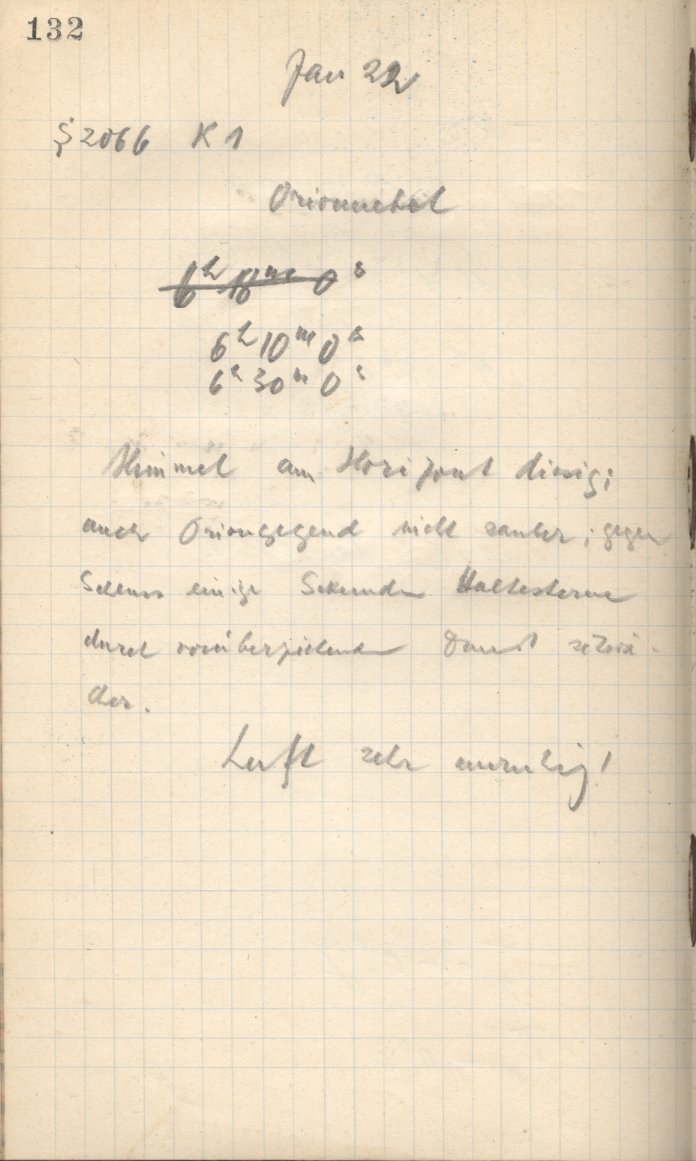 132
Jan 22
§ 2066 K 1
Orionnebel
6h 18m 0s
6h 10m 0s
6h 30m 0s
Himmel am Horizont diesig;
auch Oriongegend nicht sauber; gegen
Schluss einige Sekunden Haltesterne
durch vorüberziehenden Dunst schwä-
cher.
Luft sehr unruhig!